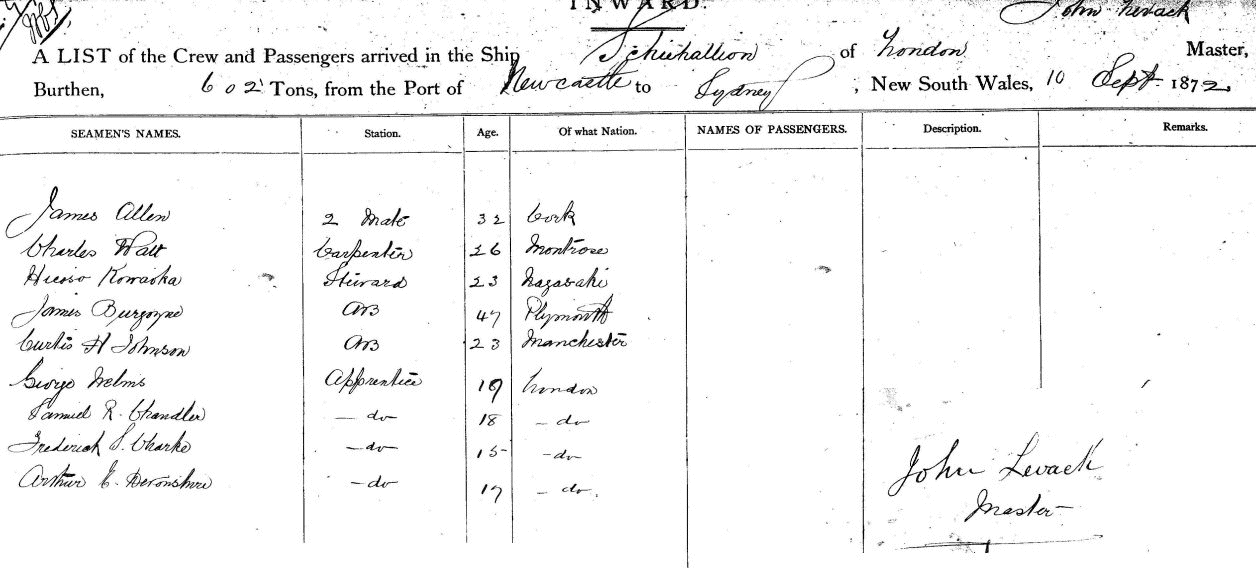 INWARD.
John Levack
A LIST of the Crew and Passengers arrived in the Ship Schiehallion of London Master,
Burthen, 602 Tons, from the Port of Newcastle to Sydney, New South Wales, 10 Sept. 1872.
SEAMEN'S NAMES. Station. Age. Of what Nation. NAMES OF PASSENGERS. Description. Remarks.
James Allen 2 Mate 32 Cork
Charles Watt Carpenter 26 Montrose
Kowaoka Steward 23 Nagasaki
James Burgoyne AB 47 Plymouth
Curtis H Johnson AB 23 Manchester
George Apprentice 19 London
Samuel R. Chandler — do 18 — do
Frederick S. — do 15 — do
Arthur E. Devonshire — do 17 — do.
John Levack
Master